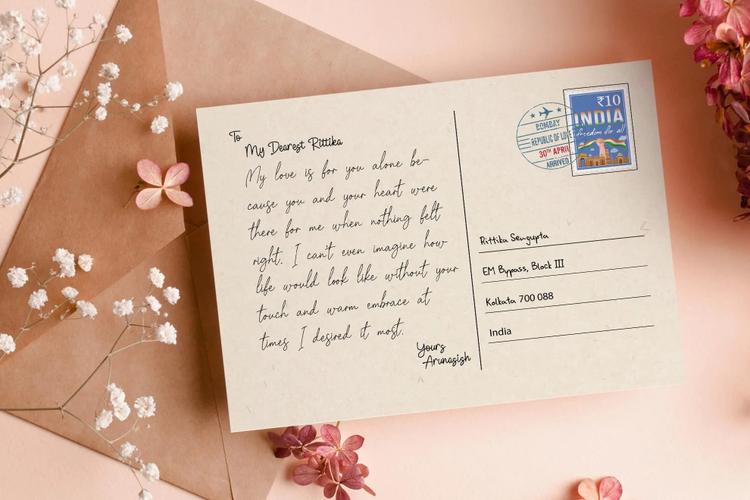 To
My Dearest Rittika
My love is for you alone be-
cause you and your heart were
there for me when nothing felt
right. I can't even imagine how
life would look like without your
touch and warm embrace at
times I desired it most.
Yours
Arunasish
BOMBAY
REPUBLIC OF
30TH APRIL
ARRIVED
₹10
INDIA
freedom for all
Rittika Sengupta
EM Bypass, Block III
Kolkata 700 088
India